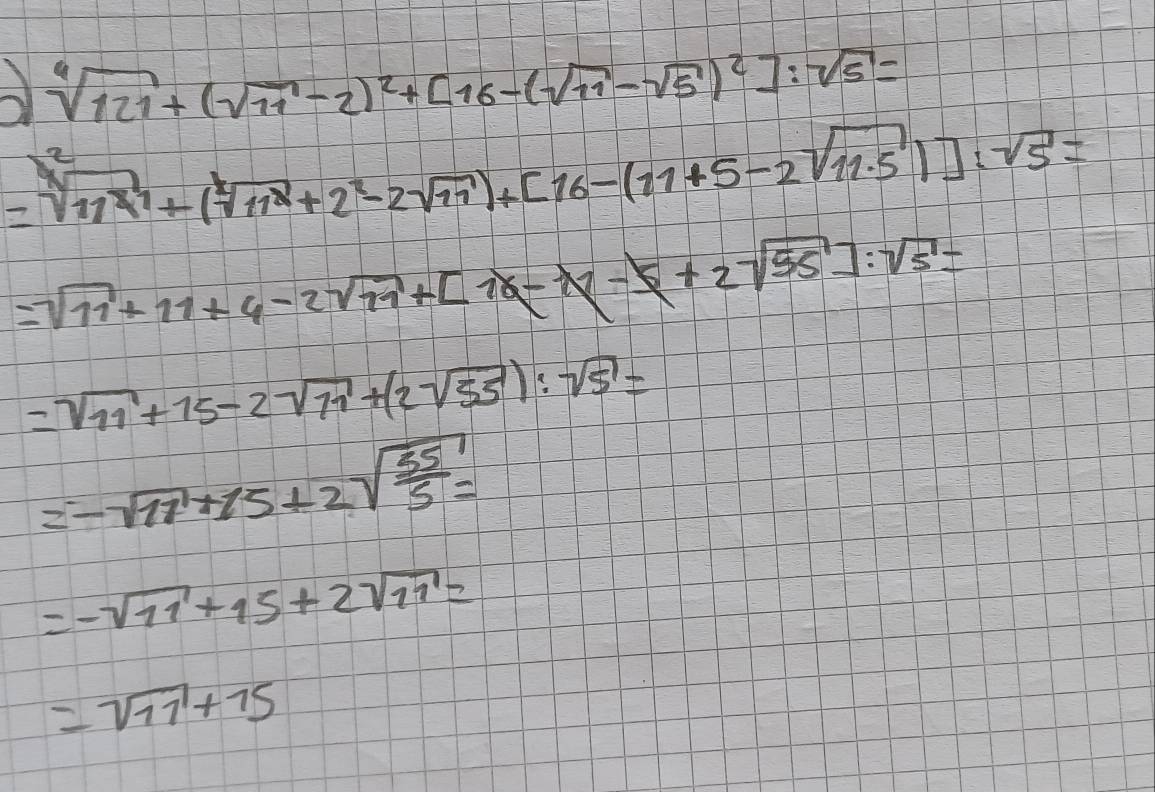 d) ∜121 + (√11 - 2)² + [16 - (√11 - √5)²] : √5 =
= ∜11² + (√11² + 2² - 2√11) + [16 - (11 + 5 - 2√11·5)] : √5 =
= √11 + 11 + 4 - 2√11 + [16 - 11 - 5 + 2√55] : √5 =
= √11 + 15 - 2√11 + (2√55) : √5 =
= -√11 + 15 + 2√55/5 =
= -√11 + 15 + 2√11 =
= √11 + 15